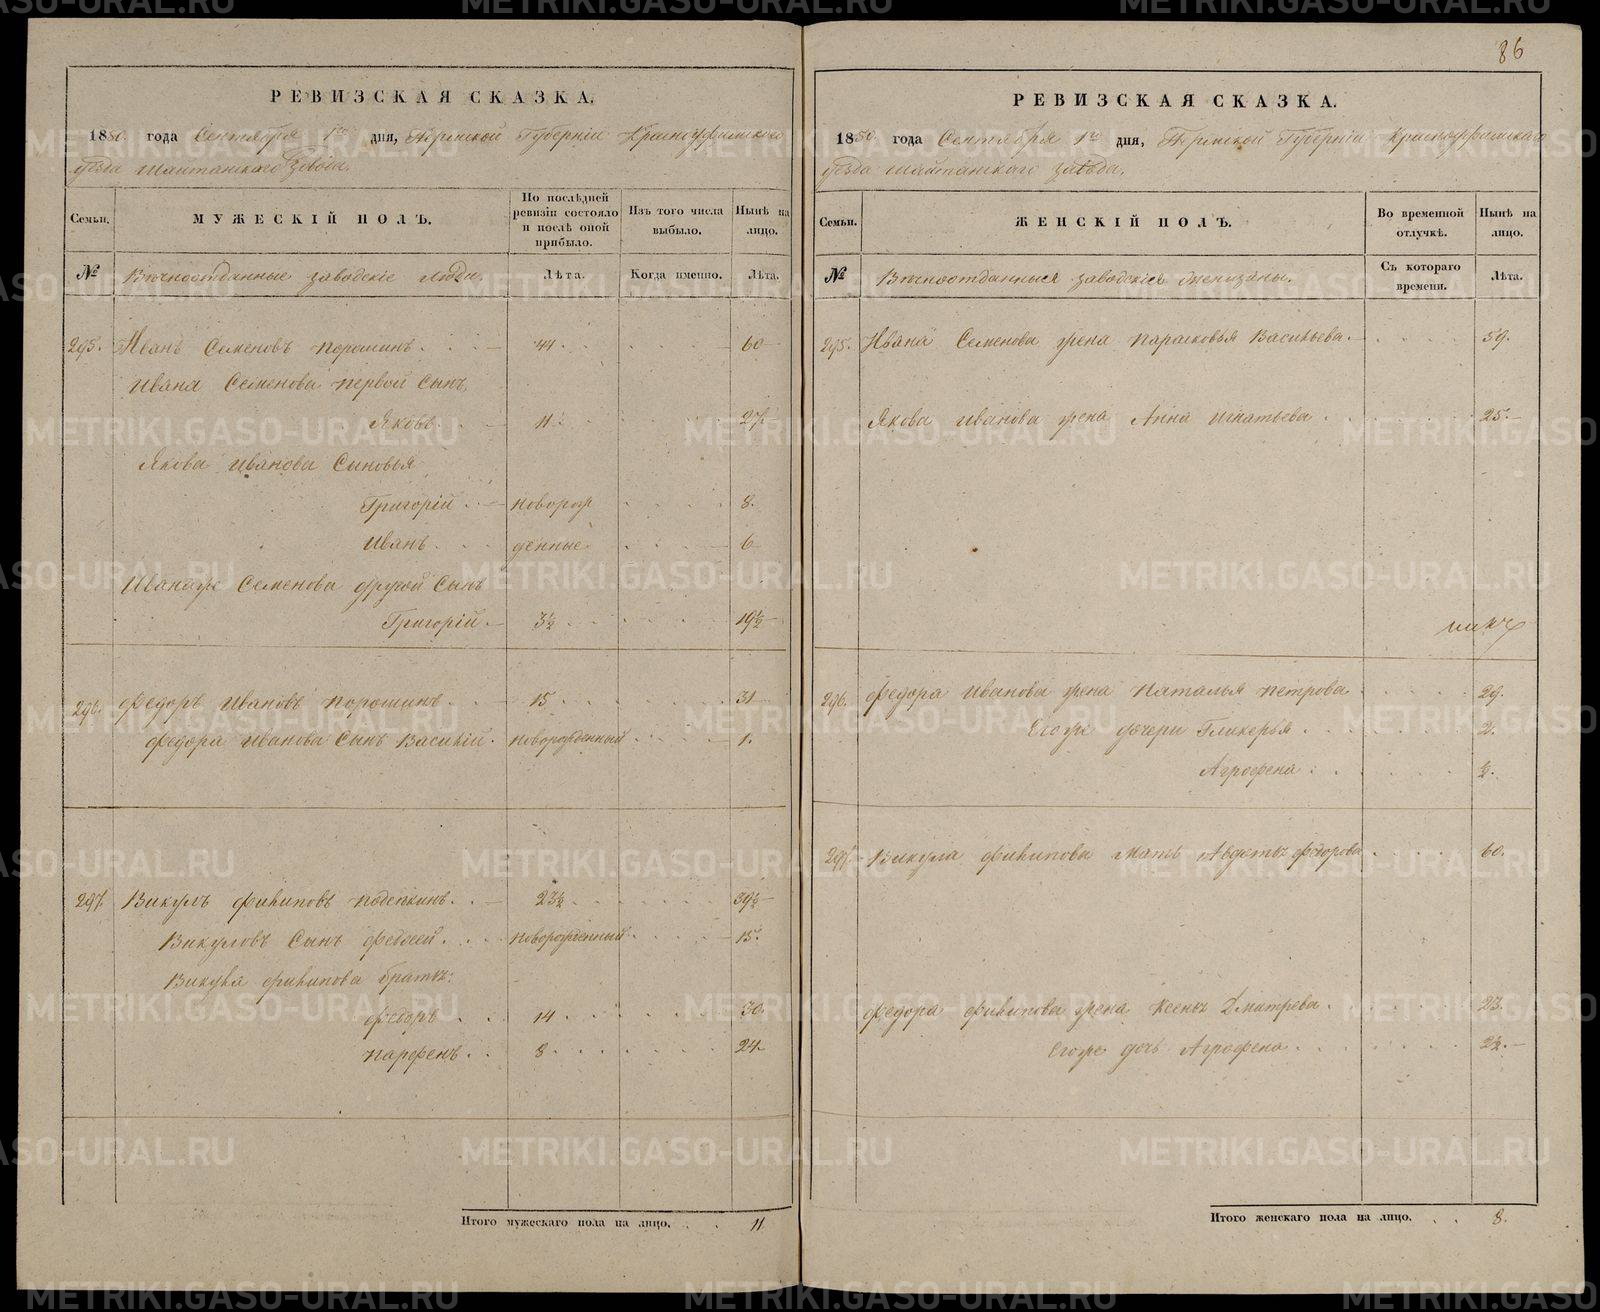 86
РЕВИЗСКАЯ СКАЗКА.
1850 года Сентября 1го дня, Пермской Губерніи Красноуфимскаго
уѣзда Шайтанскаго завода.
Семьи. МУЖЕСКІЙ ПОЛЪ. По послѣдней ревизіи состояло и послѣ оной прибыло. Изъ того числа выбыло. Нынѣ на лицо.
№ Вѣчноотданные заводскіе люди. Лѣта. Когда именно. Лѣта.
295. Иванъ Семеновъ Порошинъ. 44. 60
Ивана Семенова первой сынъ
Яковъ. 11. 27
Якова Иванова Сыновья
Григорій новорож 8.
Иванъ. денные 6
Иванаже Семенова другой Сынъ
Григорій. 3½ 19½
296. Федоръ Ивановъ Порошинъ. 15. 31
Федора Иванова Сынъ Василій. новорожденный 1.
297. Викулъ Филиповъ 23½ 39½
Викуловъ Сынъ Федосей. новорожденный 15.
Викула Филипова братья:
Федоръ 14. 30.
Парфенъ. 8. 24
Итого мужескаго пола на лицо. 11.
РЕВИЗСКАЯ СКАЗКА.
1850 года Сентября 1го дня, Пермской Губерніи Красноуфимскаго
уѣзда Шайтанскаго завода.
Семьи. ЖЕНСКІЙ ПОЛЪ. Во временной отлучкѣ. Нынѣ на лицо.
№ Вѣчноотданныя заводскія женщины. Съ котораго времени. Лѣта.
295. Ивана Семенова жена Парасковья Васильева. 59.
Якова Иванова жена Анна Игнатьева 25.
296. Федора Иванова жена Наталья Петрова 29.
Егоже дочери Гликерья 2.
Агрофена ½.
297. Викула Филипова мать Авдотья Федорова 60.
Федора Филипова жена Ксенья Дмитрева. 23.
Егоже дочь Агрофена 2½.
Итого женскаго пола на лицо. 8.
METRIKI.GASO-URAL.RU